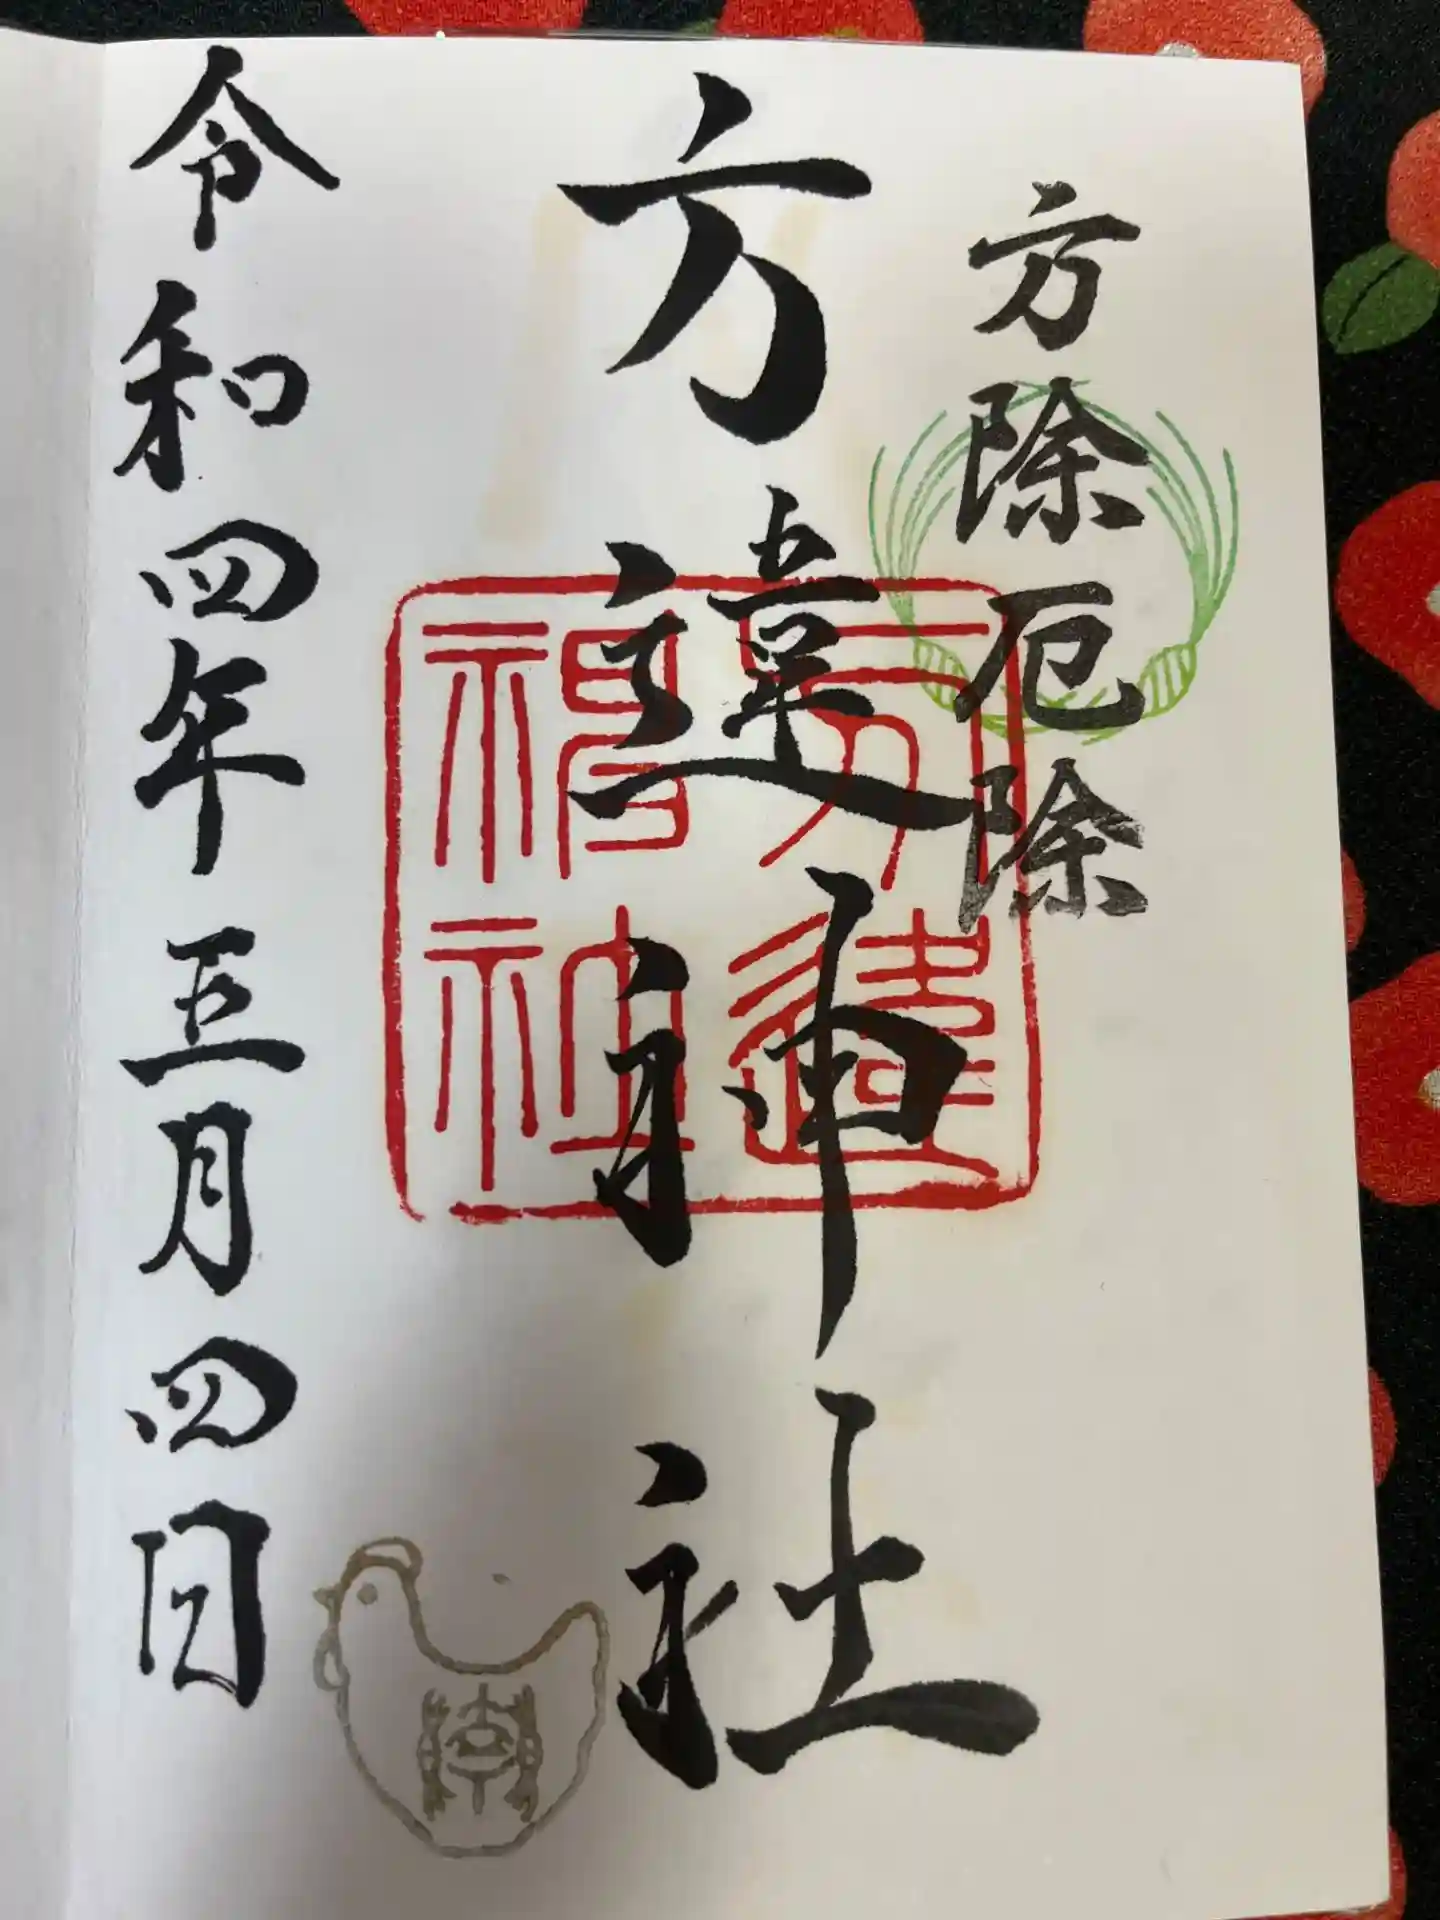 方除厄除
方違神社
方違神社
令和四年五月四日